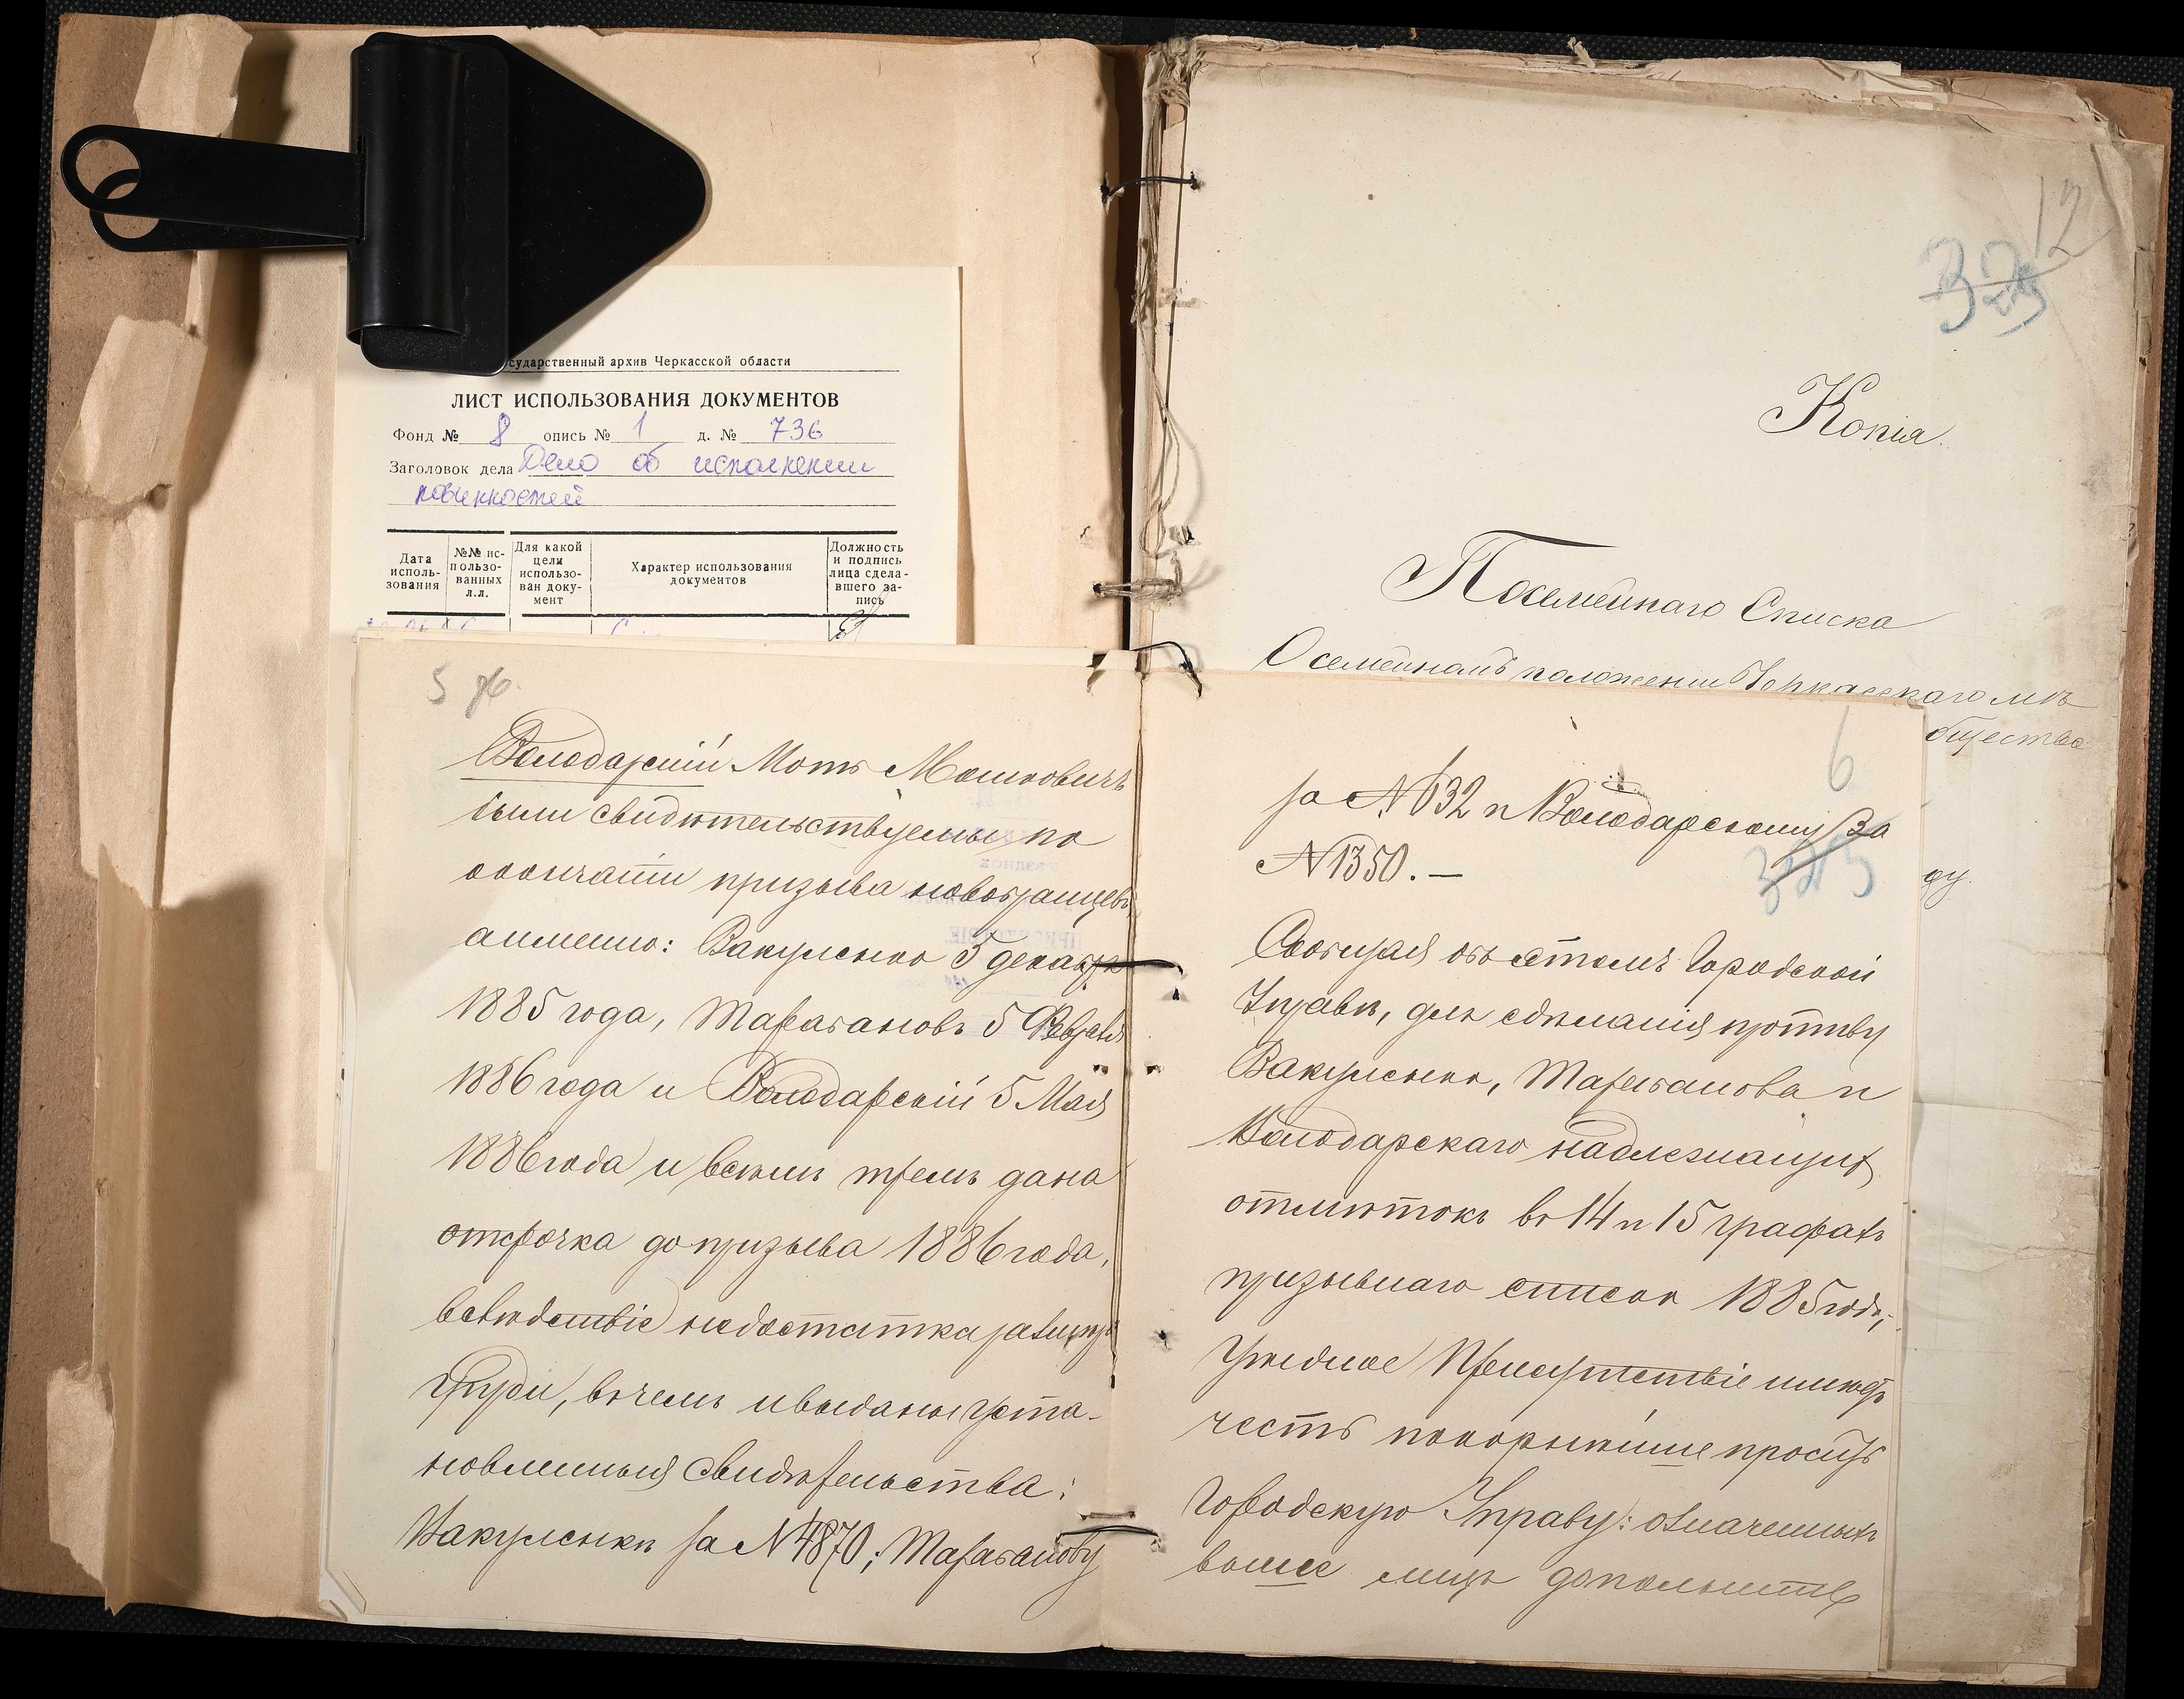 сударственный архив Черкасской области
ЛИСТ ИСПОЛЬЗОВАНИЯ ДОКУМЕНТОВ
Фонд № 8 опись № 1 д. № 736
Заголовок дела Дело об исполнении
повинностей
Дата исполь-зования
№№ ис-пользо-ванных л.л.
Для какой цели использо-ван доку-мент
Характер использования документов
Должность и подпись лица сдела-вшего за-пись
5 об.
Володарскій Мотъ Мошковичъ
были свидѣтельствуемы по
окончаніи призыва новобранцевъ
а именно: Вакуленко 5 декабря
1885 года, Тараканов 5 Февраля
1886 года и Володарскій 5 Мая
1886 года и всѣмъ тремъ дана
отсрочка до призыва 1886 года,
вслѣдствіе недостатка размѣра
груди, въ чемъ и выданы уста-
новленныя свидѣтельства:
Вакуленкѣ за № 4870; Тараканову
12
323
Копія
Посемейнаго Списка
О семейномъ положеніи Черкасскаго мѣ
бщества
ду.
6
за № 632 и Володарскому за
№ 1350. —
323
Сообщая объ этомъ Городской
Управѣ, для сдѣланія противу
Вакуленко, Тараканова и
Володарскаго надлежащихъ
отмѣтокъ въ 14 и 15 графахъ
призывнаго списка 1885 года,
Уѣздное Присутствіе имѣетъ
честь покорнѣйше просить
Городскую Управу: означенныхъ
выше лицъ дополнить